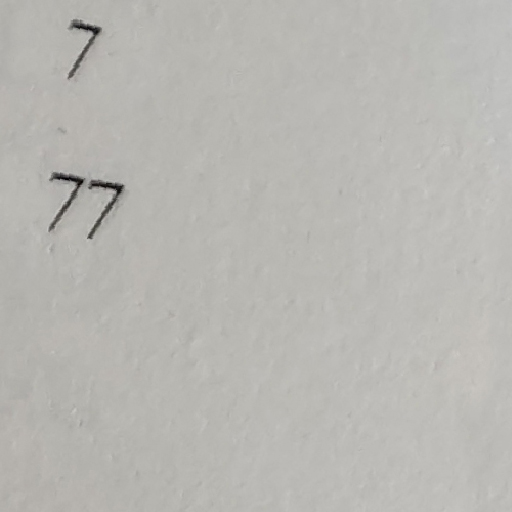 7
77